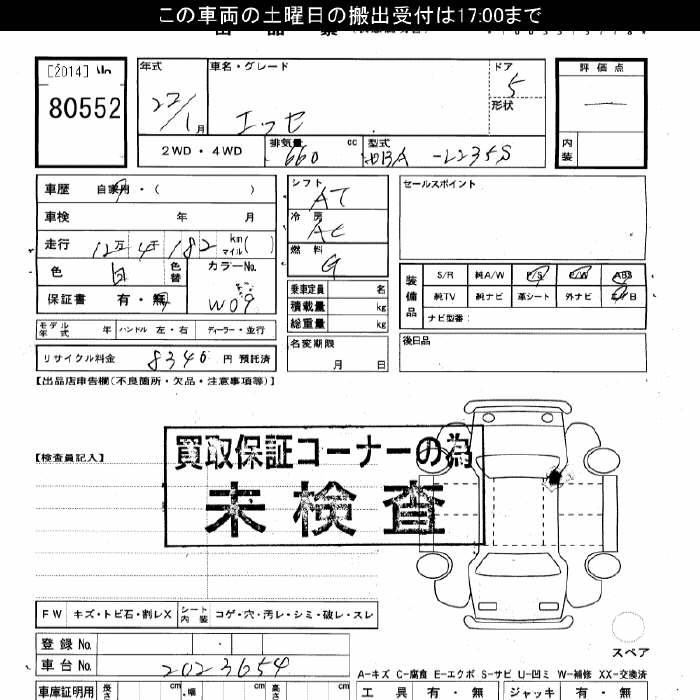 この車両の土曜日の搬出受付は17:00まで
[2014]
80552
年式
22/1月
車名・グレード
エッセ
ドア
5
形状
評価点
内装
2WD・4WD
排気量 660 cc
型式 -L235S
車歴 自家用・( )
車検 年 月
走行 12万4千182 km マイル( )
色 白 色替
カラーNo. W09
保証書 有・無
モデル年式 年 ハンドル 左・右 ディーラー・並行
リサイクル料金 8340 円 預託済
シフト AT
冷房 AC
燃料 G
乗車定員 名
積載量 kg
総重量 kg
名変期限 月 日
セールスポイント
装備品
S/R 純A/W P/S P/W ABS
純TV 純ナビ 革シート 外ナビ エアB
ナビ型番:
後日品
【出品店申告欄(不良箇所・欠品・注意事項等)】
【検査員記入】
買取保証コーナーの為
未検査
FW キズ・トビ石・割レX シート内装 コゲ・穴・汚レ・シミ・破レ・スレ
登録No.
車台No. 2023654
スペア
A-キズ C-腐食 E-エクボ S-サビ U-凹ミ W-補修 XX-交換済
車庫証明用 長さ cm 幅 cm 高さ cm
工具 有・無 ジャッキ 有・無